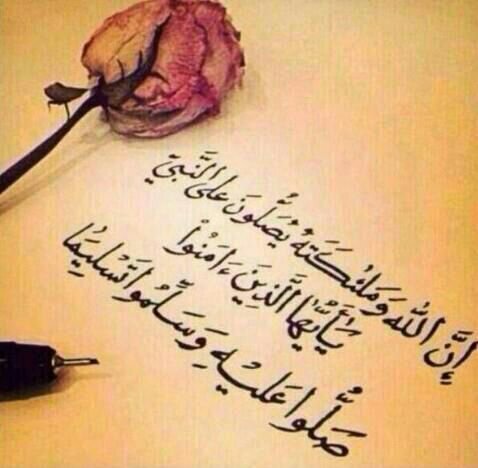 إِنَّ اللَّهَ وَمَلَٰئِكَتَهُ يُصَلُّونَ عَلَى النَّبِيِّ
يَٰأَيُّهَا الَّذِينَ ءَامَنُوا
صَلُّوا عَلَيْهِ وَسَلِّمُوا تَسْلِيمًا